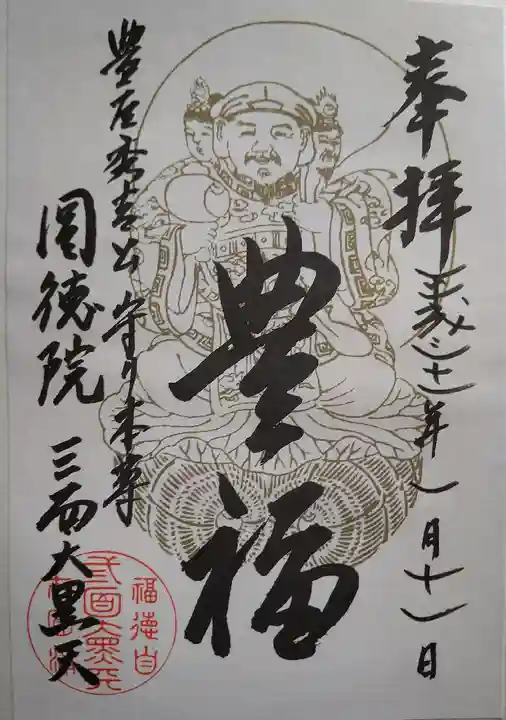 奉拝
平成三十一年一月十一日
豊福
豊臣秀吉公 守り本尊
圓徳院 三面大黒天